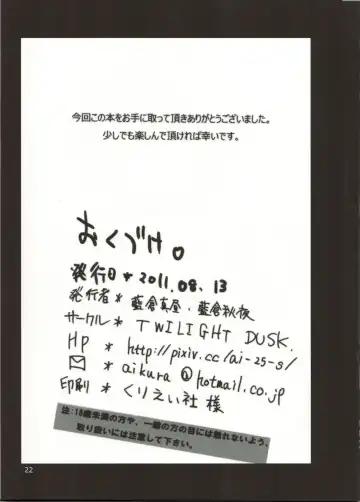 今回この本をお手に取って頂きありがとうございました。
少しでも楽しんで頂ければ幸いです。
おくづけ。
発行日 * 2011.08.13
発行者 * 藍倉真屋・藍倉秋夜
サークル * TWILIGHT DUSK.
HP * http://pixiv.cc/ai-25-s/
✉ * aikura@hotmail.co.jp
印刷 * くりえい社様
注:18歳未満の方や、一般の方の目には触れないよう、
取り扱いには注意して下さい。
22